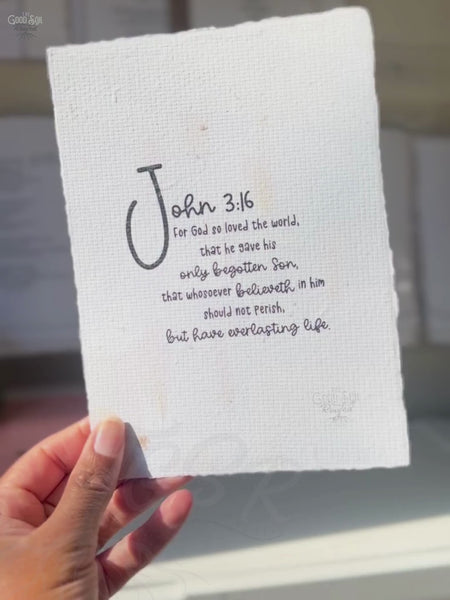 The
Good Soil
John 3:16
For God so loved the world,
that he gave his
only begotten Son,
that whosoever believeth in him
should not perish,
but have everlasting life.
Good Soil